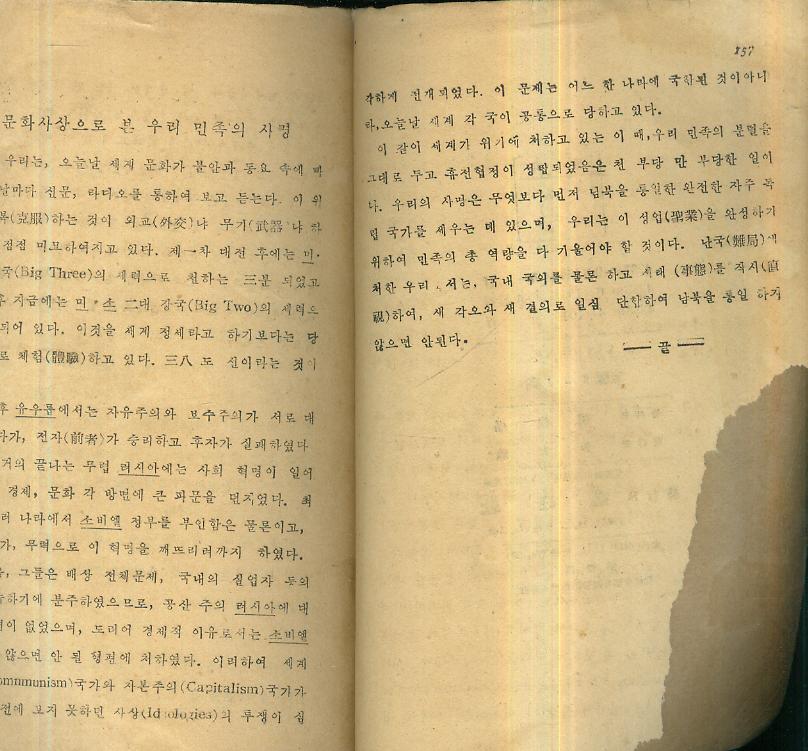 문화사상으로 본 우리 민족의 사명
우리는, 오늘날 세계 문화가 불안과 동요 속에
날마다 신문, 라디오를 통하여 보고 듣는다. 이 위
복(克服)하는 것이 외교(外交)나 무기(武器)나
점점 미묘하여지고 있다. 제一차 대전 후에는 미·
국(Big Three)의 세력으로 천하는 三분 되었고
후 지금에는 미 · 소 二대 강국(Big Two)의 세력으
되어 있다. 이것을 세계 정세라고 하기보다는 당
로 체험(體驗)하고 있다. 三八 도 선이라는 것이
후 유우롭에서는 자유주의와 보수주의가 서로 대
다가, 전자(前者)가 승리하고 후자가 실패하였다
거의 끝나는 무렵 러시아에는 사회 혁명이 일어
경제, 문화 각 방면에 큰 파문을 던지었다. 최
러 나라에서 소비엘 정부를 부인함은 물론이고,
가, 무력으로 이 혁명을 깨뜨리려까지 하였다.
그들은 배상 전체문제, 국내의 실업자 등의
하기에 분주하였으므로, 공산 주의 러시아에 대
이 없었으며, 도리어 경제적 이유로서는 소비엘
않으면 안 될 형편에 처하였다. 이리하여 세계
ommnunism)국가와 자본주의(Capitalism)국가가
전에 보지 못하던 사상(Ideologies)의 투쟁이 심
157
각하게 전개되었다. 이 문제는 어느 한 나라에 국한된 것이아니
라,오늘날 세계 각 국이 공통으로 당하고 있다.
이 같이 세계가 위기에 처하고 있는 이 때,우리 민족의 분열을
그대로 두고 휴전협정이 성립되었음은 천 부당 만 부당한 일이
다. 우리의 사명은 무엇보다 먼저 남북을 통일한 완전한 자주 독
립 국가를 세우는 데 있으며, 우리는 이 성업(聖業)을 완성하기
위하여 민족의 총 역량을 다 기울어야 할 것이다. 난국(難局)에
처한 우리로서는, 국내 국외를 물론 하고 사태(事態)를 직시(直
視)하여, 새 각오와 새 결의로 일심 단합하여 남북을 통일 하지
않으면 안된다.
— 끝 —